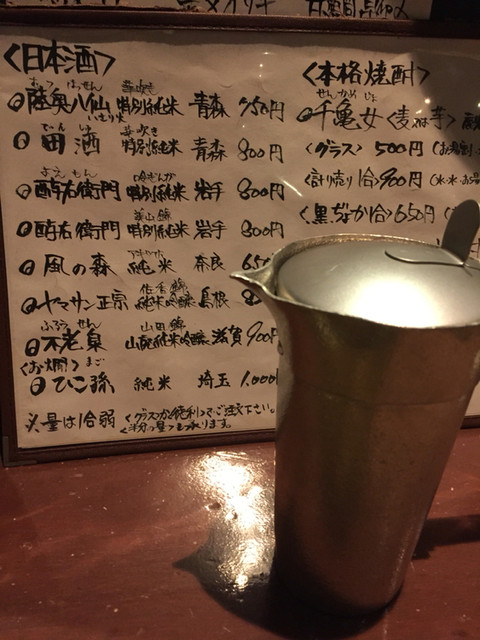 <日本酒>
むつ はっせん 華吹き
陸奥八仙 特別純米 青森 750円
でん しゅ 華吹き
田酒 特別純米 青森 800円
よえもん 吟ぎんが
酉与右衛門 特別純米 岩手 800円
美山錦
酉与右衛門 特別純米 岩手 800円
風の森 純米 奈良 65
佐香錦
ヤマサン正宗 純米吟醸 島根 8
ふろうせん 山田錦
不老泉 山廃純米吟醸 滋賀 900円
<お燗> まご
ひこ孫 純米 埼玉 1.000
※量は1合弱 <グラスか徳利>でご注文下さい。
<半分の量>も承ります。
<本格焼酎>
せんかめじょ
千亀女 <麦or芋>
<グラス> 500円
<計り売り1合> 900円
<黒ぢょか1合> 650円